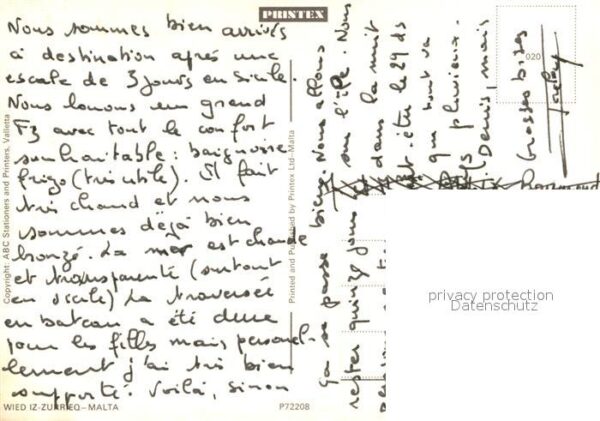 PRINTEX
Nous sommes bien arrivés
à destination après une
escale de 3 jours en Sicile.
Nous louons un grand
F3 avec tout le confort
souhaitable : baignoire
frigo (très utile). Il fait
très chaud et nous
sommes déjà bien
bronzé. La mer est chaude
et transparente (surtout
en Sicile) La traversée
en bateau a été dure
pour les filles mais personel-
lement j'ai très bien
supporté. Voilà, sinon
ça se passe bien. Nous allons
rester quinze jours
sur l'île. Nous
dans la nuit
le 29 ds
que tout va
pluvieux.
Denis, mais
Grosses bises
020
Copyright: ABC Stationers and Printers, Valletta
Printed and Published by Printex Ltd–Malta
WIED IZ-ZURRIEQ–MALTA
P72208
privacy protection
Datenschutz